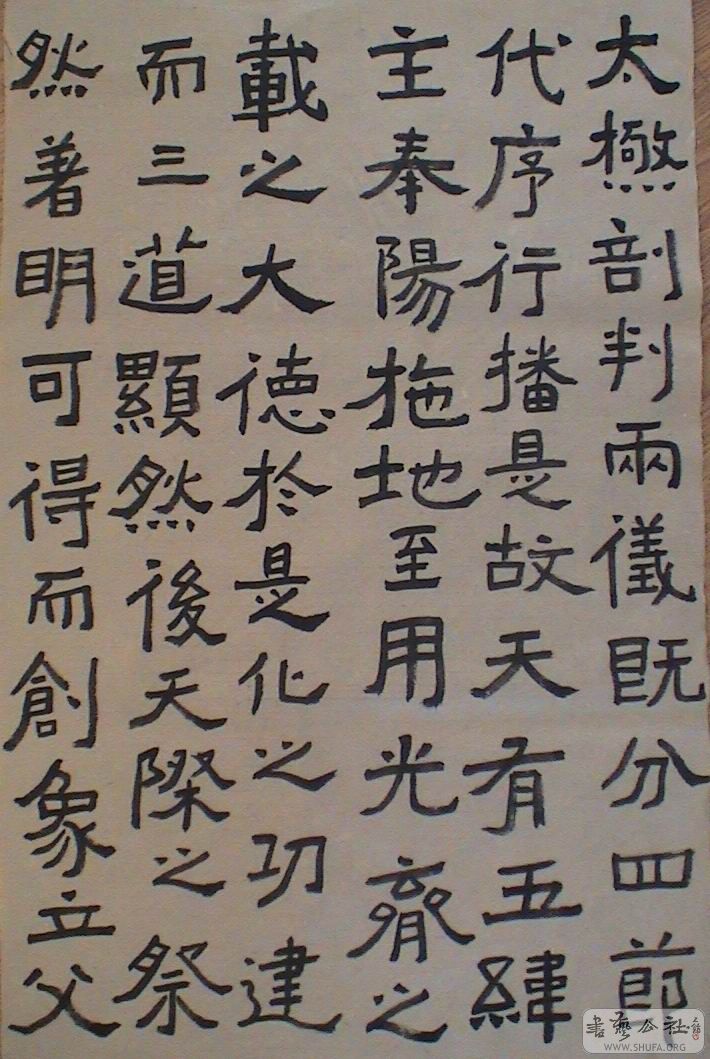 太極剖判兩儀既分四節
代序行播是故天有五緯
主奉陽施地至用光齊之
載之大德於是化之功建
而三道顯然後天際之祭
然著明可得而創象立父
書藝公社
WWW.SHUFA.ORG